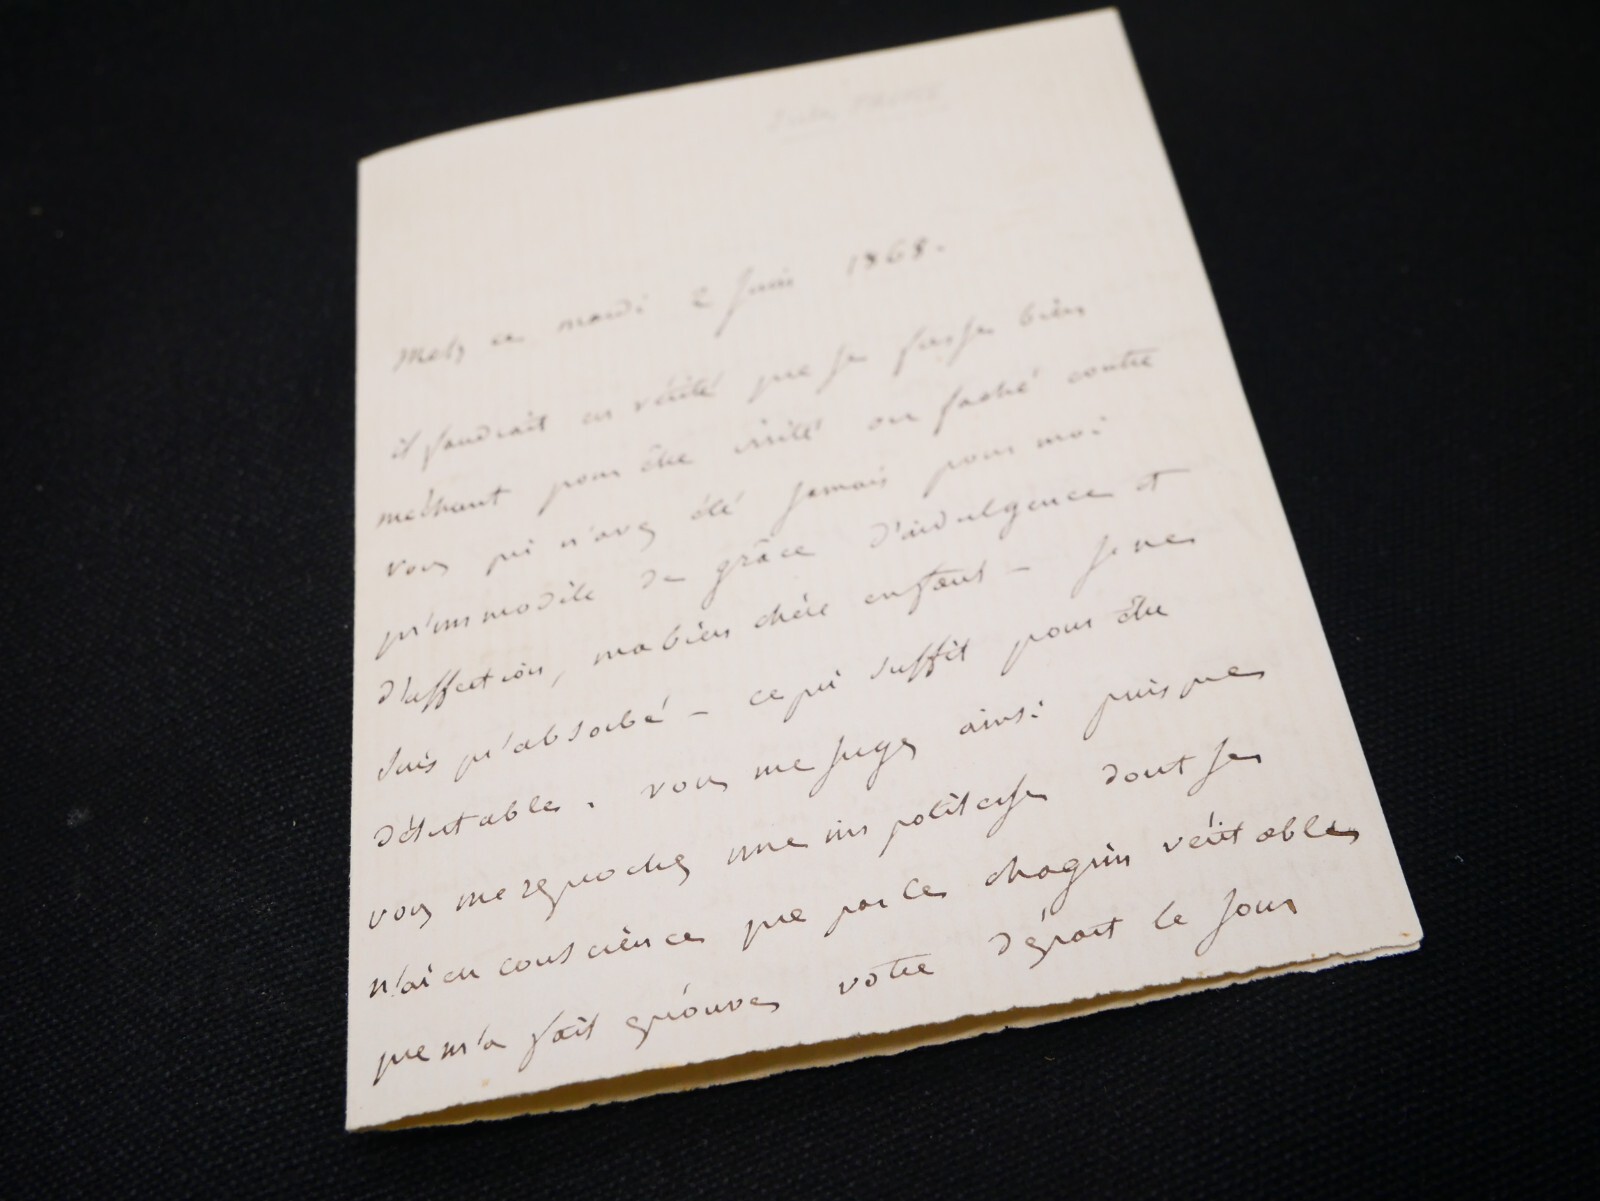 Metz ce mardi 2 Juin 1868.
il faudrait en vérité que je fusse bien
méchant pour être irrité ou faché contre
vous qui n'avez été jamais pour moi
qu'un modèle de grâce d'indulgence et
d'affection, ma bien chère enfant – je ne
suis qu'absorbé – ce qui suffit pour être
détestable. vous me jugez ainsi puisque
vous me reprochez une impolitesse dont je
n'ai eu conscience que par le chagrin véritable
que m'a fait éprouver votre départ le jour